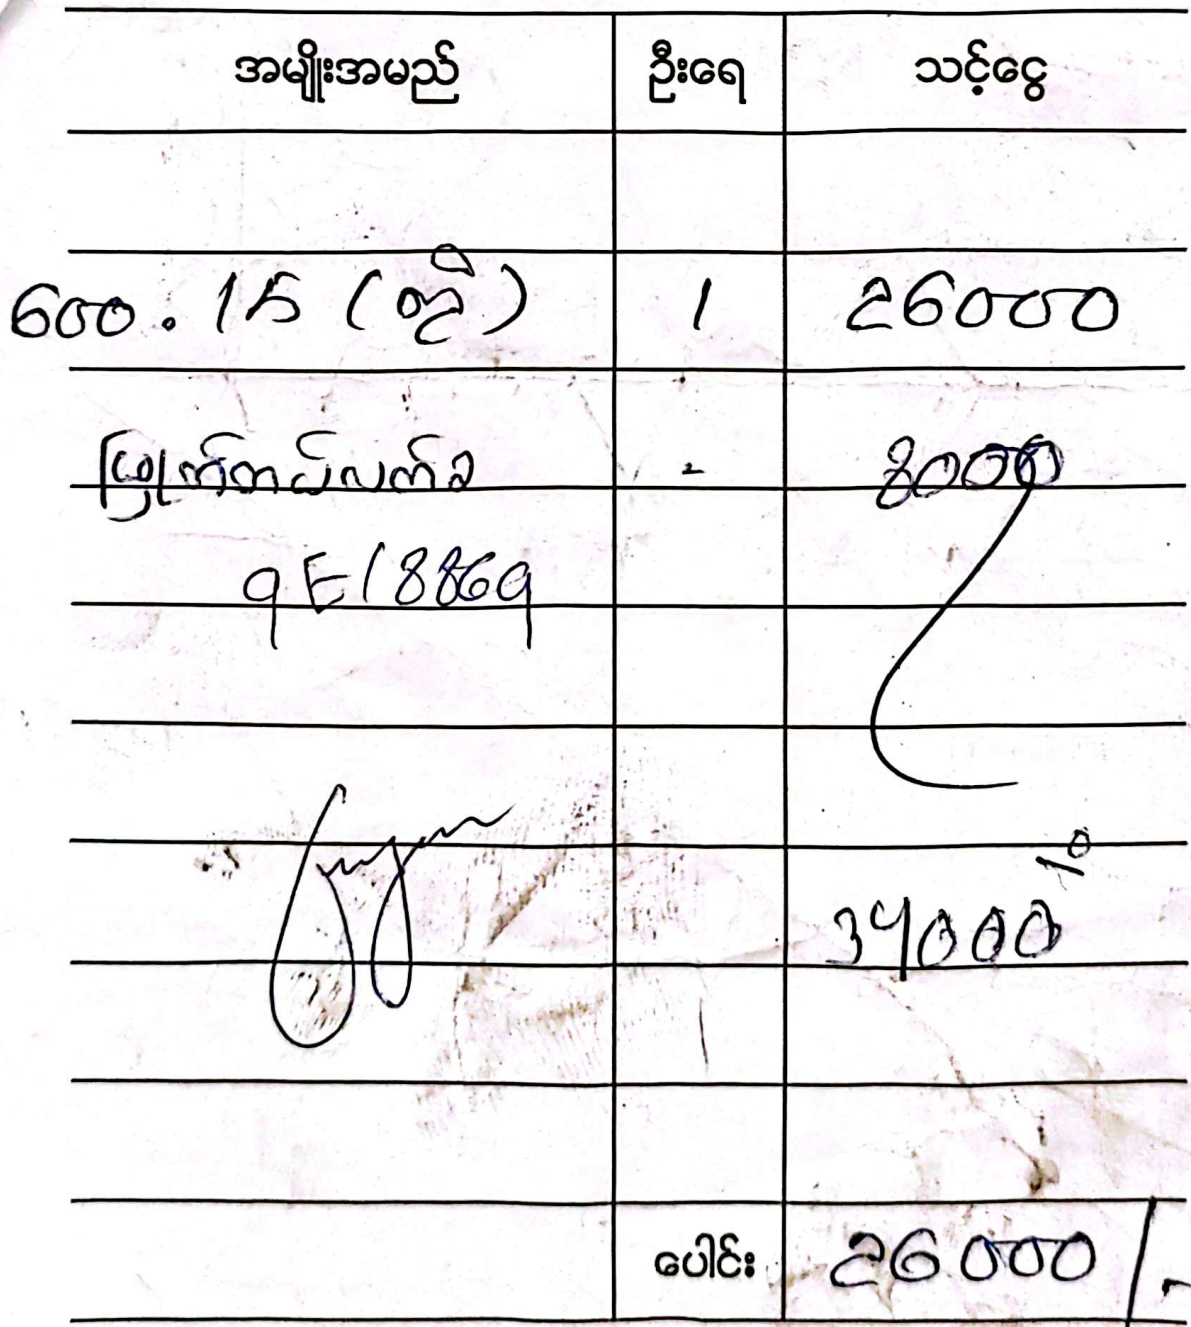 အမျိုးအမည် ဦးရေ သင့်ငွေ
600. 15 (တွဲ) 1 26000
ဖြုတ်တပ်လက်ခ - 8000
9E/8869
34000
ပေါင်း 26000/-